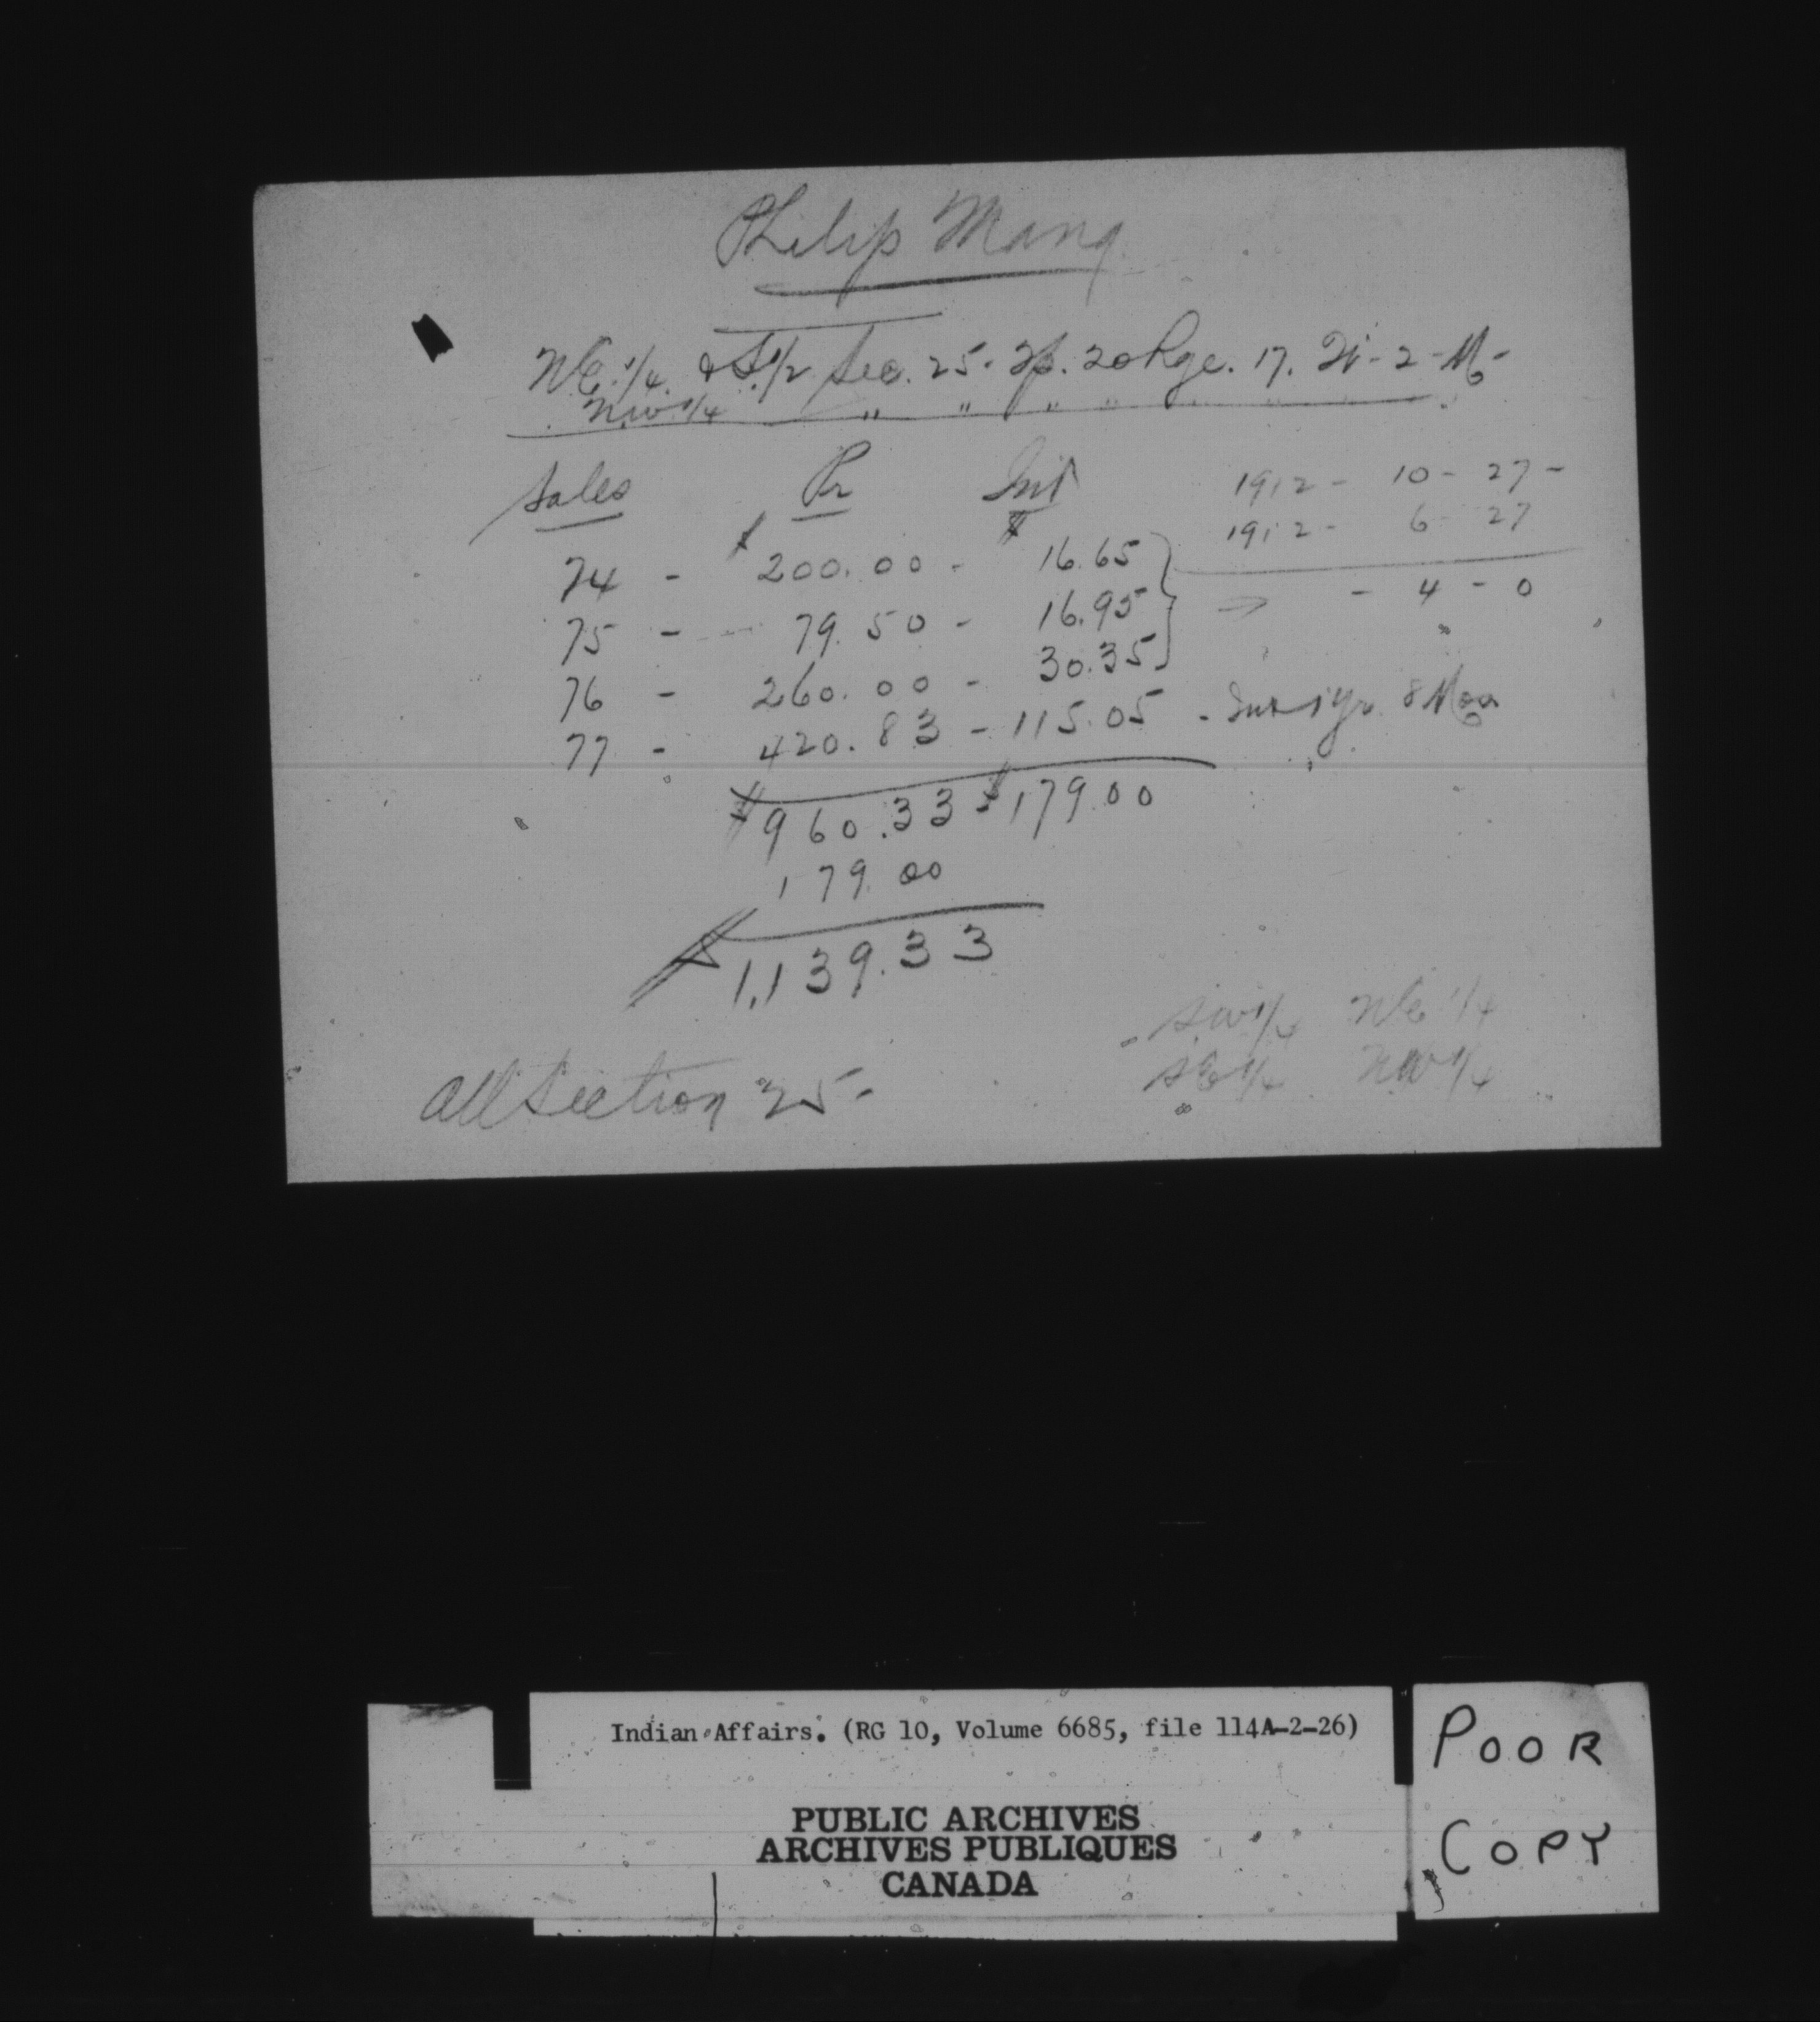 Philip Mang
NE 1/4 & S 1/2 Sec. 25 - Tp. 20 Rge. 17. W - 2 - M -
NW 1/4 " " " " " " "
Sales Pr Int
1912 - 10 - 27 -
1912 - 6 27
74 - $200.00 - $16.65
- 4 - 0
75 - 79.50 - 16.95
76 - 260.00 - 30.35
77 - 420.83 - 115.05 - Int 1 yr 8 Mos
$960.33 $179.00
179.00
$1,139.33
SW 1/4 NE 1/4
SE 1/4 NW 1/4
All Section 25 -
Indian Affairs. (RG 10, Volume 6685, file 114A-2-26)
PUBLIC ARCHIVES
ARCHIVES PUBLIQUES
CANADA
POOR
COPY